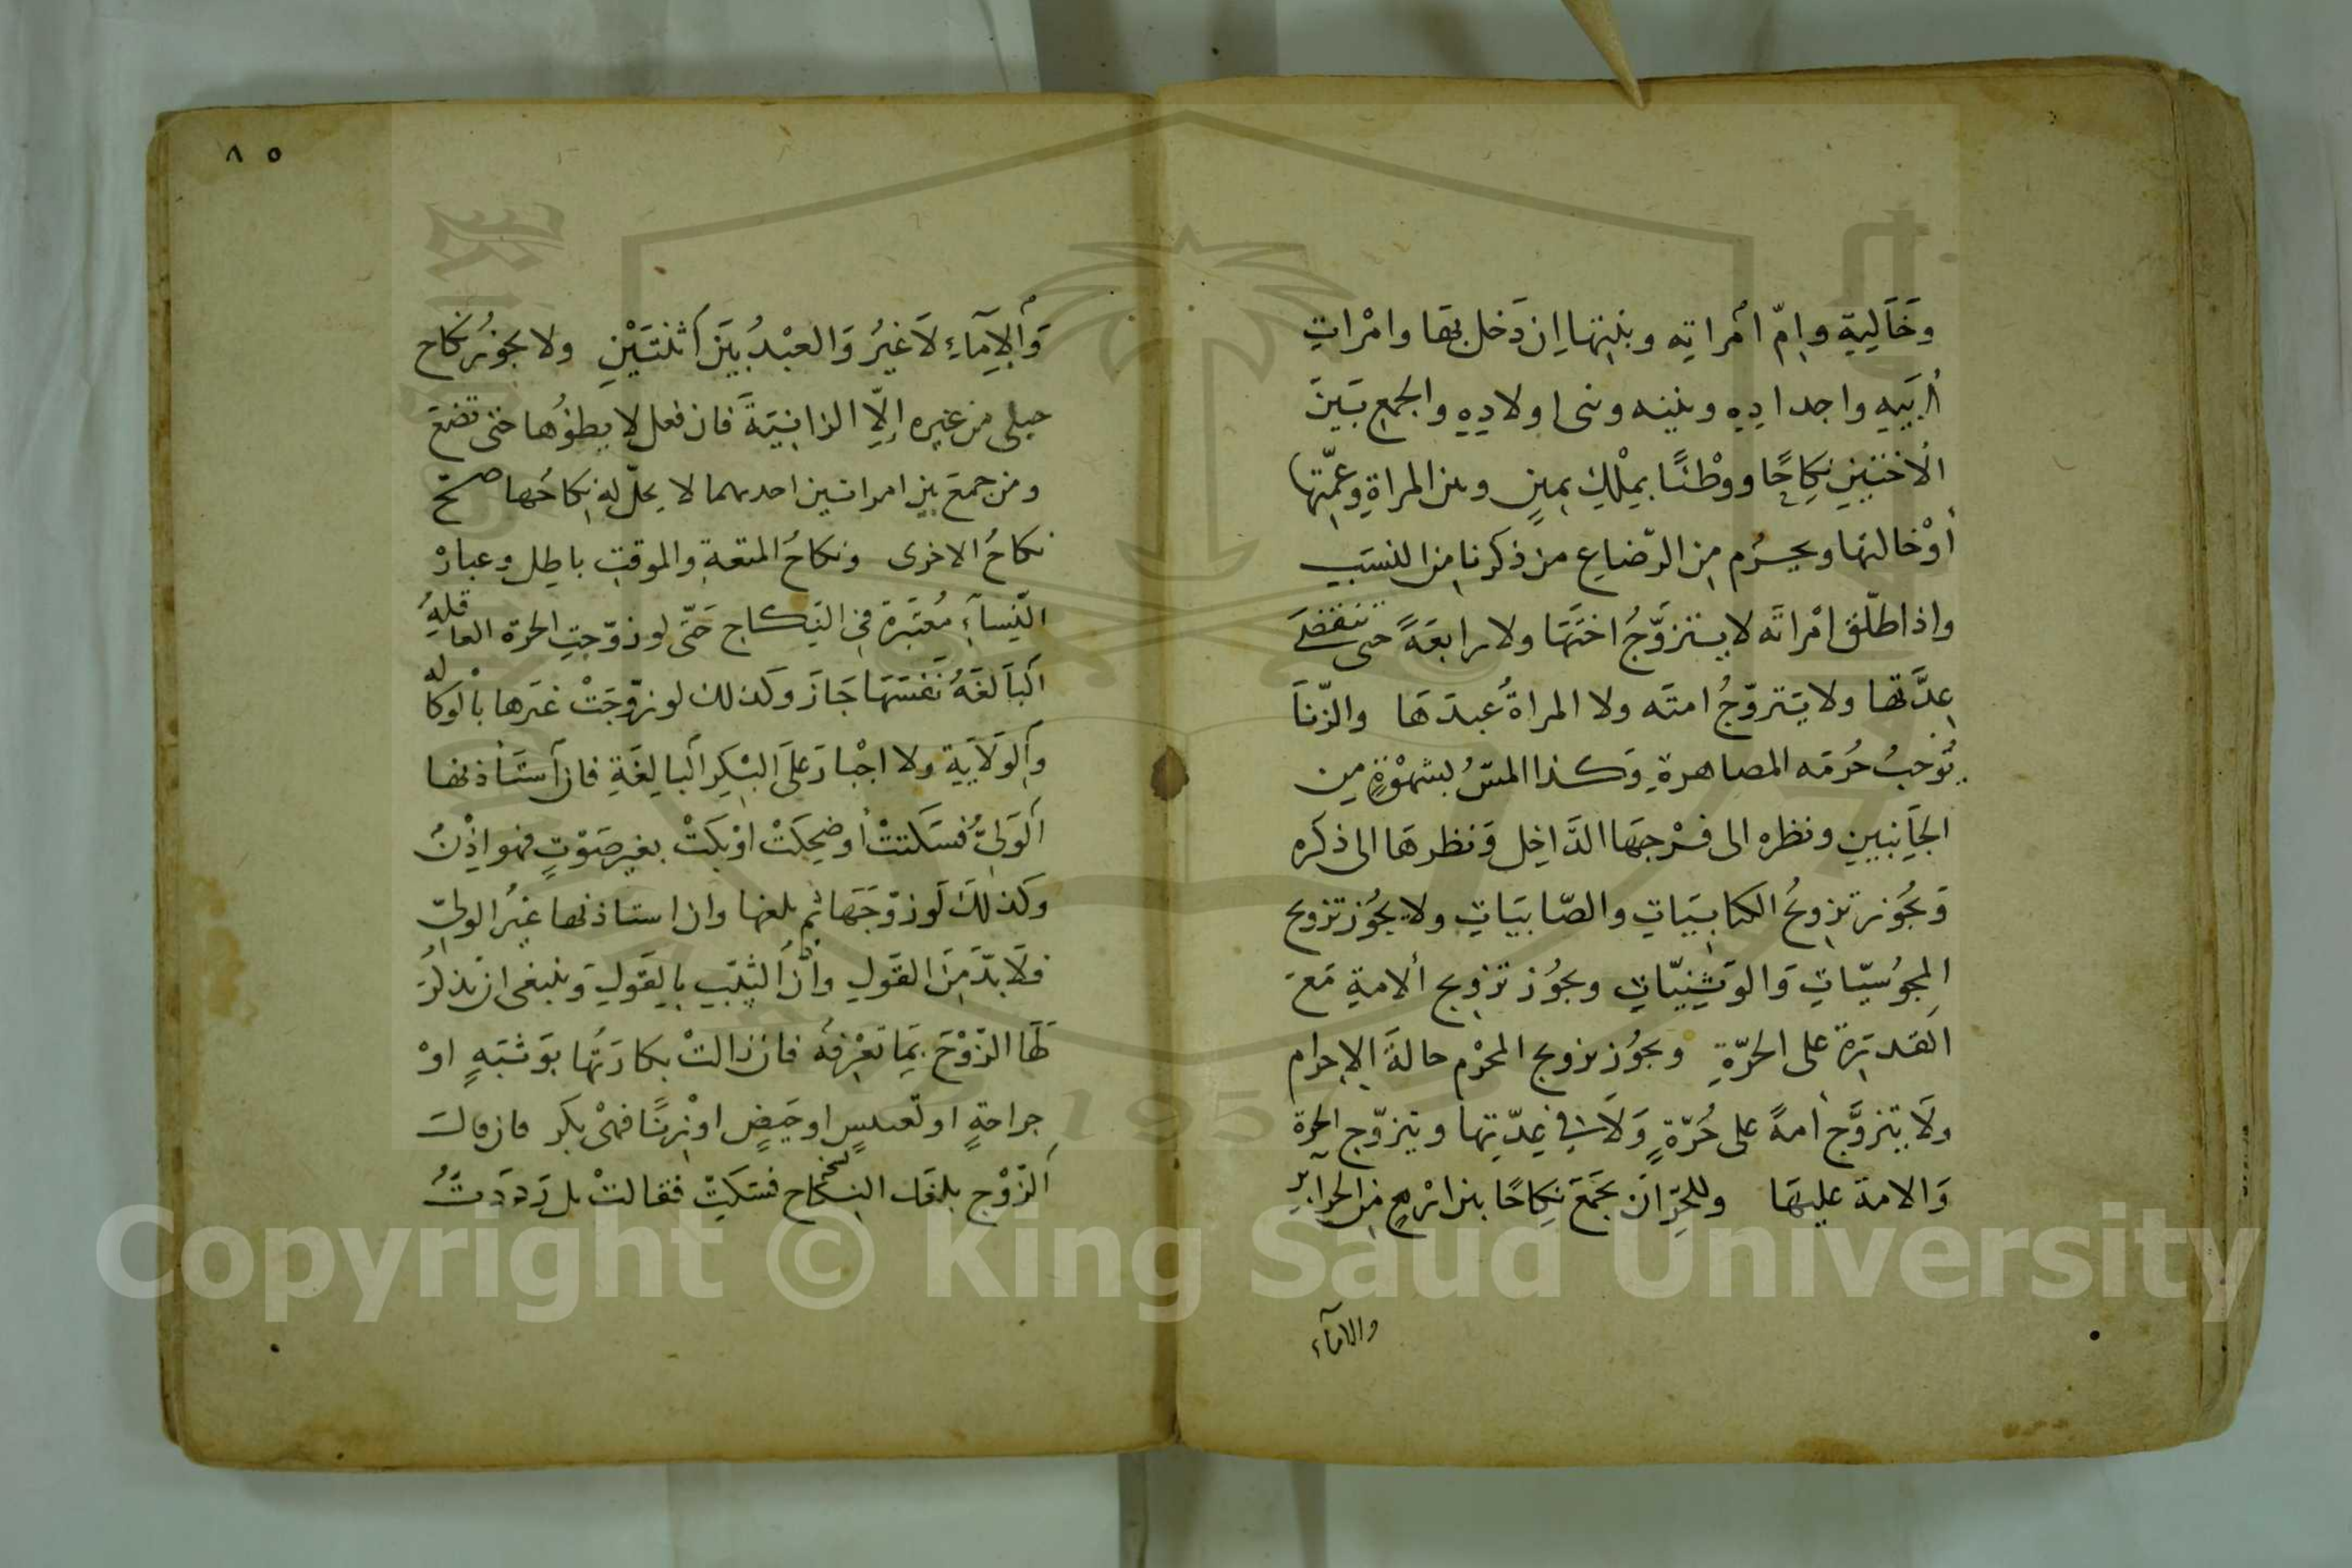 وَخَالَتِهِ وامّ امراتِه وبنتها اِن دَخل بها وامْراتِ
أَبِيهِ واجدادِهِ وبنيه وبنى اولادِهِ والجمعِ بَينَ
الُاختَينِ نِكاحًا ووْطئًا بمِلْكِ يمينٍ وبين المراةِ وعمّتها
أوْ خالتها ويحرُم مِن الرّضاعِ من ذكرنا مِن النسَبِ
واذا طلّق امْراتَه لا يتزوَّجُ اختَهَا ولا رابعَةً حتى تنقضَى
عِدَّتها ولا يتَزوّجُ امتَه ولا المراةُ عبدَهَا والزّنَا
يُوجبُ حُرمَه المصاهرةِ وَكذا المسُّ بشهْوَةٍ من
الجَانِبينِ ونظره الى فرْجهَا الدَّاخِل وَنظرهَا الى ذكَره
وَيجُوز تزوِيجُ الكتابيَاتِ والصّابيَاتِ ولا يجُوز تزويج
المجوُسيّاتِ وَالوَثنِيّاتِ ويجُوز تزويج الامةِ مَعَ
القدرَة على الحرّةِ ويجوُز تزويج المحْرم حالةَ الاِحرام
ولَا يتزوَّج امةً على حُرّةٍ وَلَا في عِدّتِها ويتزوّج الحرة
وَالامةَ عليهَا وللحرِّ انَ يجْمَعَ نِكاحًا بين ارْبعٍ مِن الحرآيرِ
والامآء
٨٥
وَالاِمَآءِ لَا غيرُ وَالعبْدُ بيَن اَثنتَيْنِ ولا يجوُز نكاح
حبلى من غيره اِلاّ الزانيَةَ فان فعل لا يطؤُها حتى تضَعَ
ومن جمعَ بين امراتين احدىهما لا يحلّ له نِكاحُها صحّ
نكاحُ الاخرى ونكاحُ المتعةِ والموقتِ باطِل وعبارْ
النّسآءِ مُعتَبرَة في النِكاح حَتّى لو زوّجتِ الحرة العاقله
اَلبَالغَهُ نَفسَهَا جَازَ وكذلك لو زوّجَتْ غيَرها باْلوكاله
وَاَلوَلَايَةِ ولا اجْبارَ علىَ البِكرِ اَلبالِغَةِ فان اَستَأذنها
اَلوَلىُّ فسَكتتْ أو ضحِكَتْ اوْ بكَتْ بغير صَوْتٍ فهو اِذْنٌ
وكَذلكَ لَو زوّجَهَا ثم بلغها وان استاذنها غيُر الولىِّ
فلَا بدّ مِنَ القَولِ واذْن الثيّبِ بالِقَولِ وَينبغى ان يذكرَ
لَهَا الزّوْجَ بِمَا تَعْرِفهُ فان زالتْ بكارَتُها بوَثبَهٍ اوْ
جراحةٍ او تعنيسٍ او حَيضٍ اوْ زِنًا فهىْ بكر فان قالَ
اَلزّوْج بلغكِ النِكاح فسَكَتّ فقالتْ بل رَدَدَتُ